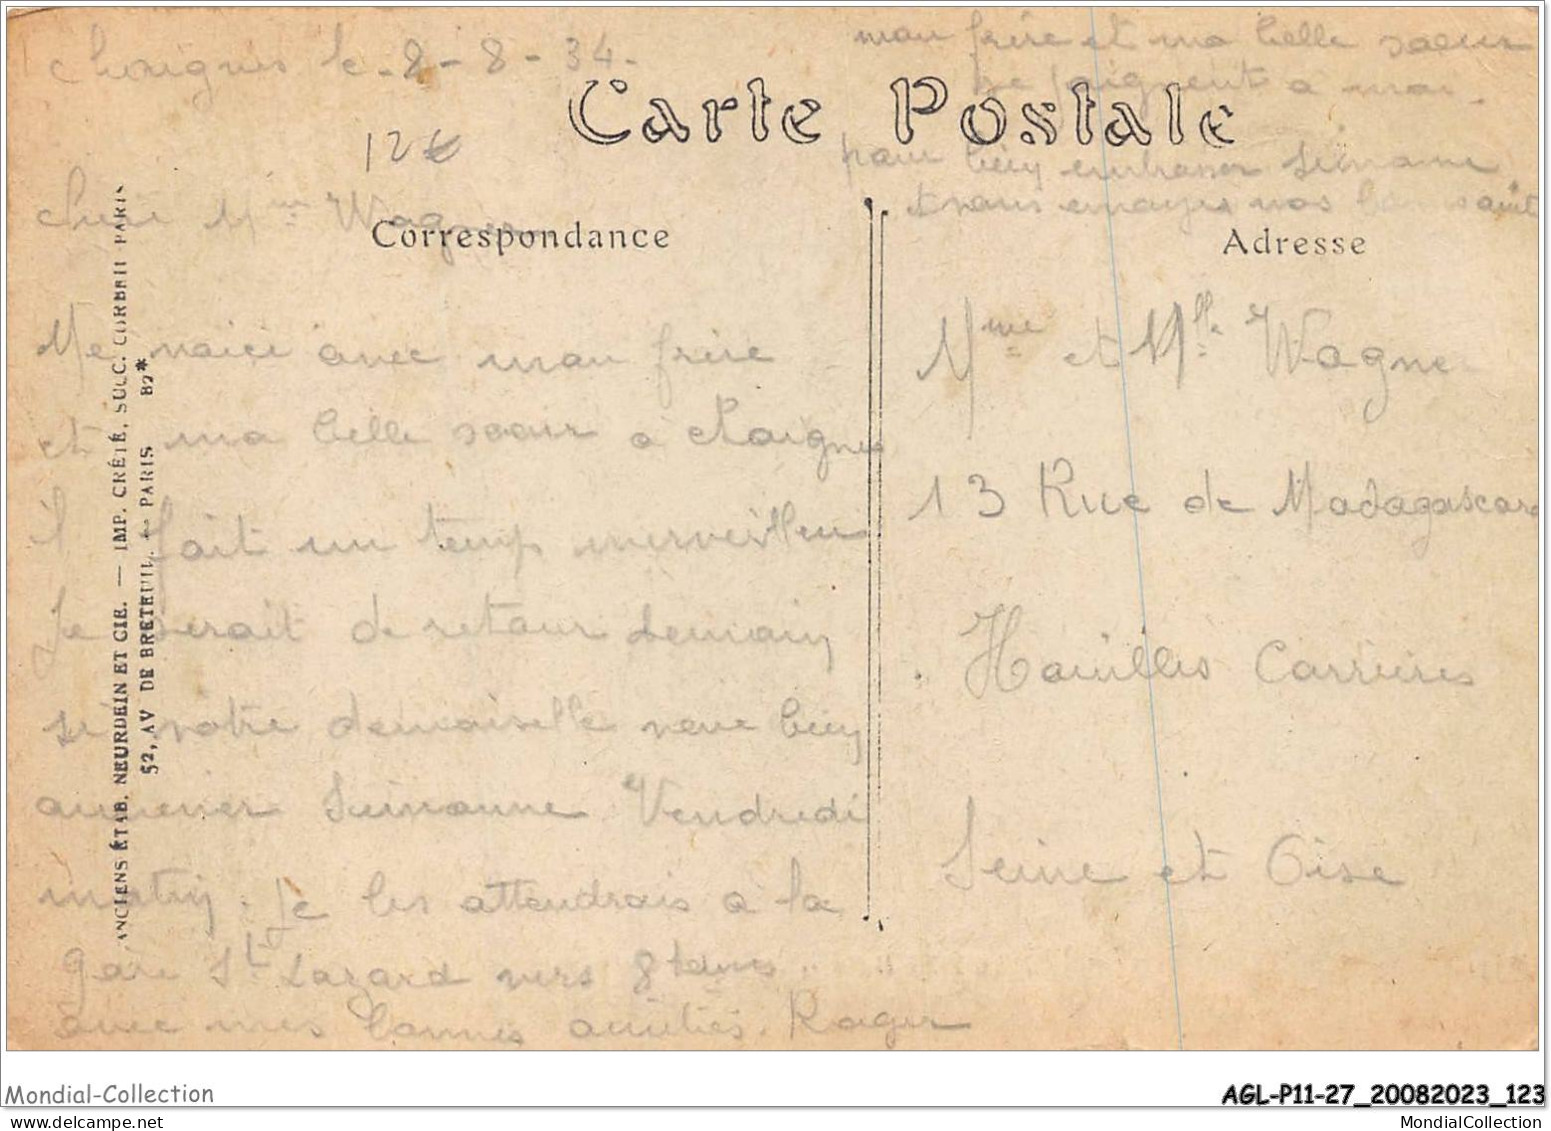 le 8-8-34.
12€
Carte Postale
mon frère et ma belle soeur
se joignent a moi.
pour bien embrasser Simonne
nos
Mme Wagner
Correspondance
Adresse
Me voici avec mon frère
et ma belle soeur a
il fait un temp merveilleu
Je serait de retour demain
si votre demoiselle veut bien
amener Simonne Vendredi
matin. Je les attendrais a la
gare St Lazard vers 8
avec mes bonnes amitiés. Roger
Mme et Mlle Wagner
13 Rue de Madagascar
Houilles Carrières
Seine et Oise
ANCIENS ÉTAB. NEURDEIN ET CIE. — IMP. CRÉTÉ, SUCC. CORBEIL PARIS
52, AV DE BRETEUIL — PARIS B2*
Mondial-Collection
AGL-P11-27_20082023_123
MondialCollection